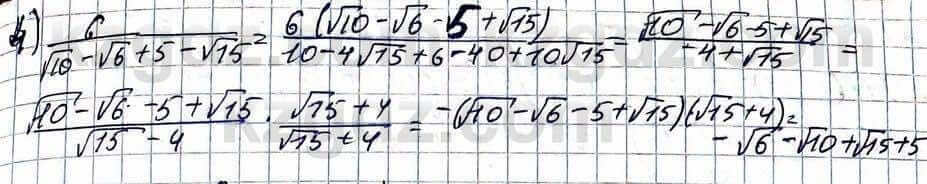 4) 6/(√10 - √6 + 5 - √15) = 6(√10 - √6 - 5 + √15)/(10 - 4√15 + 6 - 40 + 10√15) = (√10 - √6 - 5 + √15)/(-4 + √15) =
(√10 - √6 - 5 + √15)/(√15 - 4) · (√15 + 4)/(√15 + 4) = -(√10 - √6 - 5 + √15)(√15 + 4) =
- √6 - √10 + √15 + 5